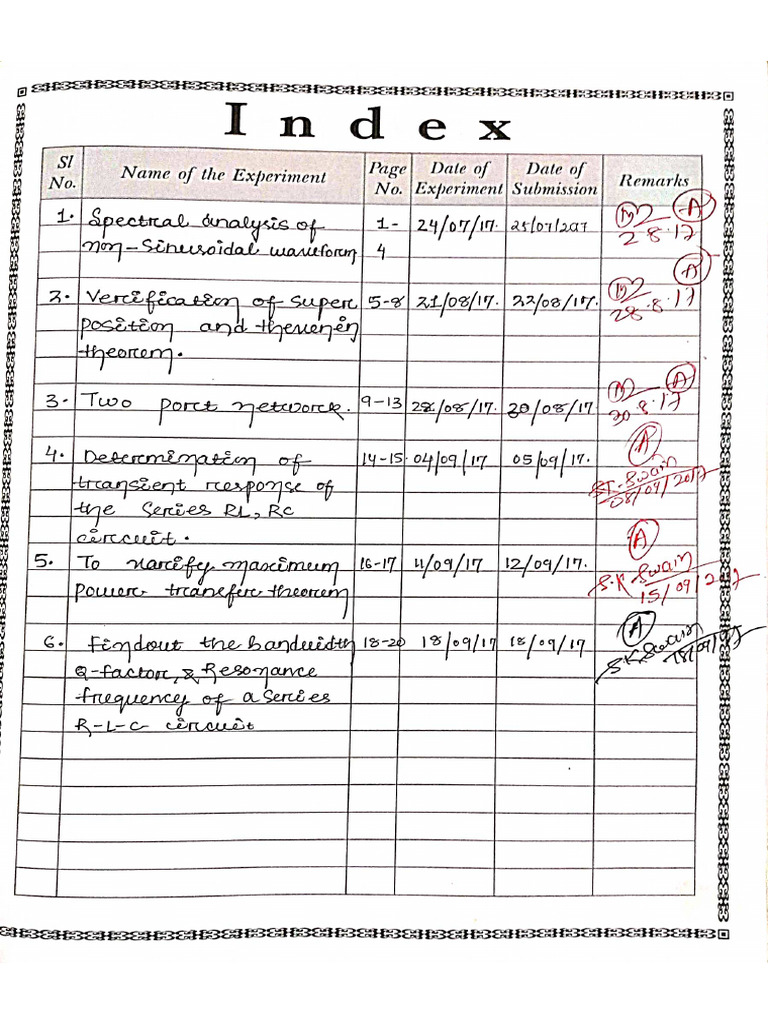 Index
Sl No. Name of the Experiment Page No. Date of Experiment Date of Submission Remarks
1. Spectral analysis of 1- 24/07/17. 25/07/2017 A
non-Sinusoidal waveform 4 2.8.17
A
2. Vercification of super 5-8 21/08/17. 22/08/17. 28.8.17
position and thevenin
theorem.
3. Two port network. 9-13 28/08/17. 30/08/17 A 30.8.17
4. Determination of 14-15. 04/09/17. 05/09/17. A
transient rcesponse of S.K. Swain 08/09/2017
the Series RL, RC
circuit. A
5. To varcify maximum 16-17 11/09/17 12/09/17. S.K Swain
power transfer theorem 15/09/2017
A
6. Findout the bandwidth 18-20 18/09/17 18/09/17 S.K. Swain 18/09/17
Q-factor, & Resonance
frequency of a series
R-L-C circuit